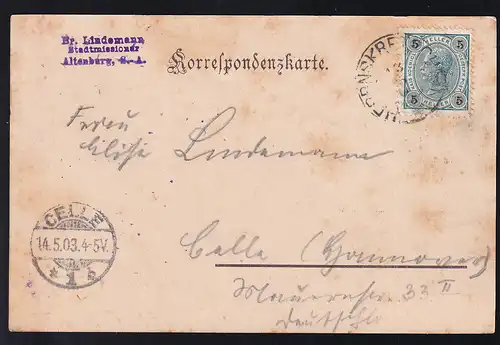 Br. Lindemann
Stadtmissionar
Altenburg, S.-A.
Korrespondenzkarte.
5 HELLER 5
5 HELLER 5
Frau
Elise Lindemann
CELLE
14.5.03.4-5V.
* 1 b
Celle (Hannover)
33 II